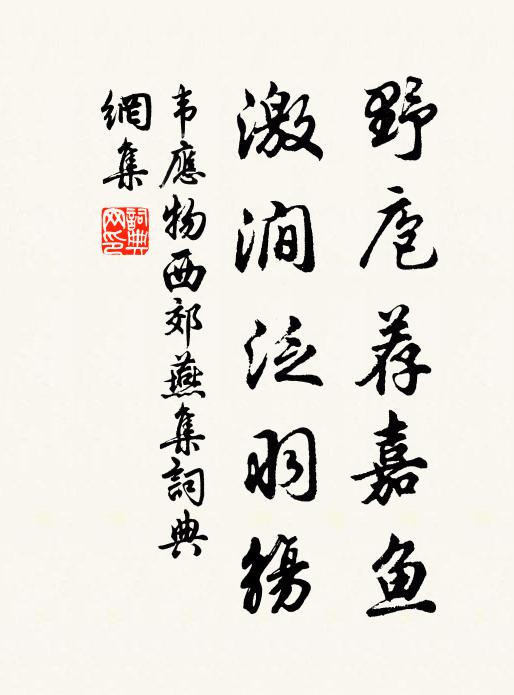 野庖荐嘉鱼
激涧泛羽觞
韦應物西郊燕集詞典
網集
詞典
网印